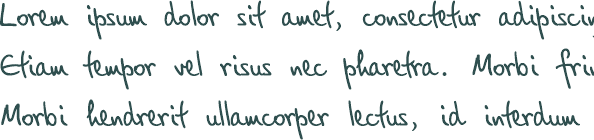 Lorem ipsum dolor sit amet, consectetur adipiscin
Etiam tempor vel risus nec pharetra. Morbi fri
Morbi hendrerit ullamcorper lectus, id interdum